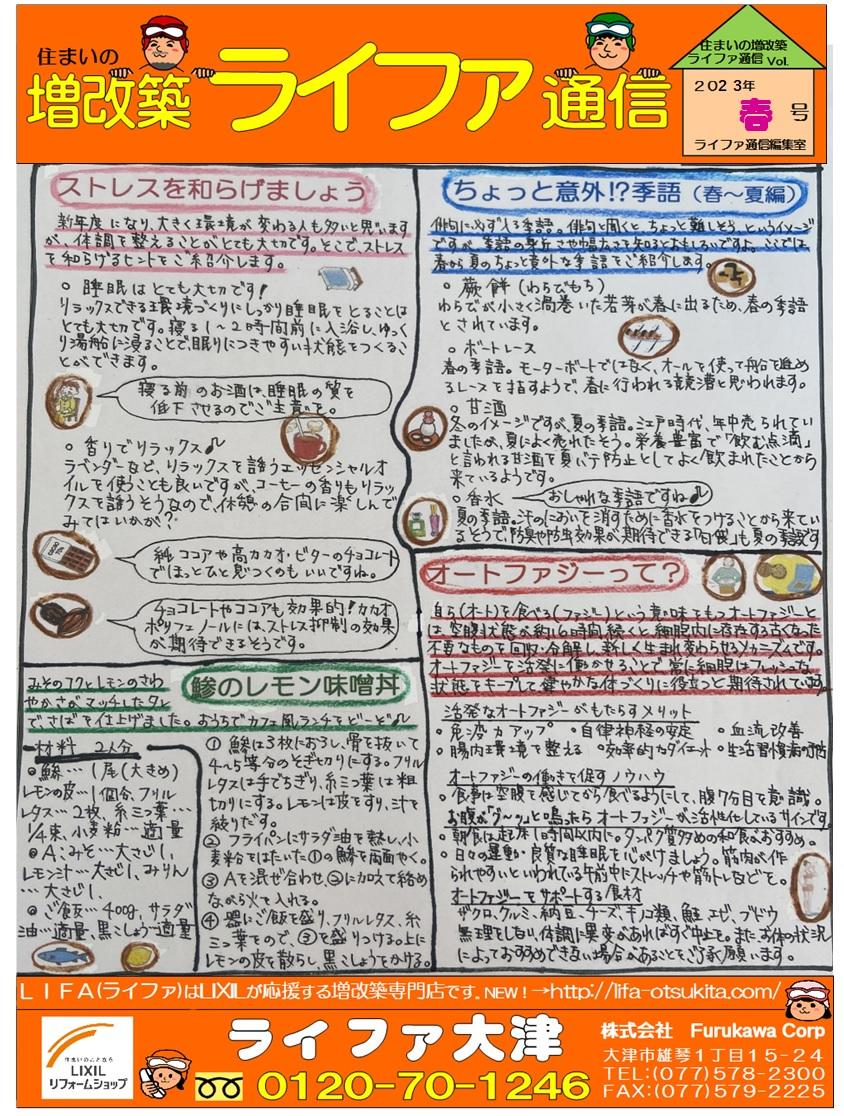 住まいの
増改築 ライファ 通信
住まいの増改築
ライファ通信 Vol.
2023年
春 号
ライファ通信編集室
ストレスを和らげましょう
新年度になり、大きく環境が変わる人も多いと思います
が、体調を整えることがとても大切です。そこで、ストレス
を和らげるヒントをご紹介します。
○ 睡眠はとても大切です!
リラックスできる環境づくりにしっかり睡眠をとることは
とても大切です。寝る1~2時間前に入浴し、ゆっく
り湯船に浸ることで眠りにつきやすい状態をつくるこ
とができます。
寝る前のお酒は、睡眠の質を
低下させるのでご注意を。
○ 香りでリラックス♪
ラベンダーなど、リラックスを誘うエッセンシャルオ
イルを使うことも良いですが、コーヒーの香りもリラッ
クスを誘うそうなので、休憩の合間に楽しんで
みてはいかが?
純ココアや高カカオ・ビターのチョコレート
でほっとひと息つくのもいいですね。
チョコレートやココアも効果的!カカオ
ポリフェノールには、ストレス抑制の効果
が期待できるそうです。
ちょっと意外!?季語(春~夏編)
俳句に必ず入る季語。俳句と聞くと、ちょっと難しそう、というイメージ
ですが、季語の身近さや幅広さを知るとおもしろいですよ。ここでは、
春から夏のちょっと意外な季語をご紹介します。
○ 蕨餅(わらびもち)
わらびが小さく渦巻いた若芽が春に出るため、春の季語
とされています。
○ ボートレース
春の季語。モーターボートではなく、オールを使って船を進め
るレースを指すようで、春に行われる競漕と思われます。
○ 甘酒
冬のイメージですが、夏の季語。江戸時代、年中売られてい
ましたが、夏によく売れたそう。栄養豊富で「飲む点滴」
と言われる甘酒を夏バテ防止としてよく飲まれたことから
来ているようです。
○ 香水 おしゃれな季語ですね♪
夏の季語。汗のにおいを消すために香水をつけることから来てい
るそうで防臭や防虫効果が期待できる「白檀」も夏の季語です
オートファジーって?
自ら(オート)を食べる(ファジー)という意味をもつオートファジーと
は空腹状態が約16時間続くと細胞内に存在する古くなった
不要なものを回収・分解し、新しく生まれ変わらせるメカニズムです。
オートファジーを活発に働かせることで常に細胞はフレッシュな
状態をキープして健やかな体づくりに役立つと期待されています。
活発なオートファジーがもたらすメリット
・免疫力アップ ・自律神経の安定 ・血流改善
・腸内環境を整える ・効率的なダイエット ・生活習慣病の予防
オートファジーの働きを促すノウハウ
○ 食事は空腹を感じてから食べるようにして、腹7分目を意識。
お腹が「グーッ」と鳴ったらオートファジーが活性化しているサインです。
○ 朝食は起床1時間以内に。タンパク質多めの和食がおすすめ。
○ 日々の運動・良質な睡眠を心がけましょう。筋肉が作
られやすいといわれている午前中にストレッチや筋トレなどを。
オートファジーをサポートする食材
ザクロ、クルミ、納豆、チーズ、キノコ類、鮭、エビ、ブドウ
無理をしない、体調に異変があればすぐ中止を。また、お体の状況
によっておすすめできない場合があることをご了承願います。
鯵のレモン味噌丼
みそのコクとレモンのさわ
やかさがマッチしたタレ
でさばを仕上げました。おうちでカフェ風ランチをどーぞ♪
材料 2人分
◎鯵…1尾(大きめ)
レモンの皮…1個分、フリル
レタス…2枚、糸三つ葉…
1/4束、小麦粉…適量
◎A:みそ…大さじ1、
レモン汁…大さじ1、みりん
…大さじ1、
◎ご飯…400g、サラダ
油…適量、黒こしょう…適量
① 鯵は3枚におろし、骨を抜いて
4~5等分のそぎ切りにする。フリル
レタスは手でちぎり、糸三つ葉は粗
切りにする。レモンは皮をすり、汁を
絞りだす。
② フライパンにサラダ油を熱し、小
麦粉をはたいた①の鯵を両面やく。
③ Aを混ぜ合わせ、②に加えて絡め
ながら火を入れる。
④ 器にご飯を盛り、フリルレタス、糸
三つ葉をので、③を盛りつける。上に
レモンの皮を散らし、黒こしょうをかける。
LIFA(ライファ)はLIXILが応援する増改築専門店です。NEW!→http://lifa-otsukita.com/
住まいのことなら
LIXIL
リフォームショップ
ライファ大津
0120-70-1246
株式会社 Furukawa Corp
大津市雄琴1丁目15-24
TEL:(077)578-2300
FAX:(077)579-2225